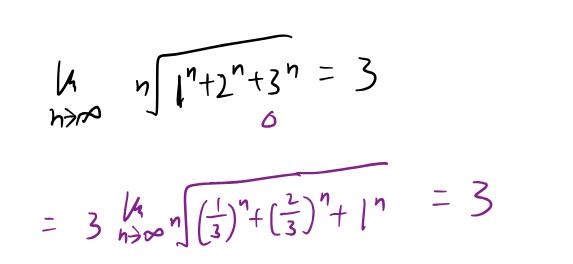 lim n→∞ ⁿ√(1ⁿ+2ⁿ+3ⁿ) = 3
0
= 3 lim n→∞ ⁿ√((1/3)ⁿ+(2/3)ⁿ+1ⁿ) = 3